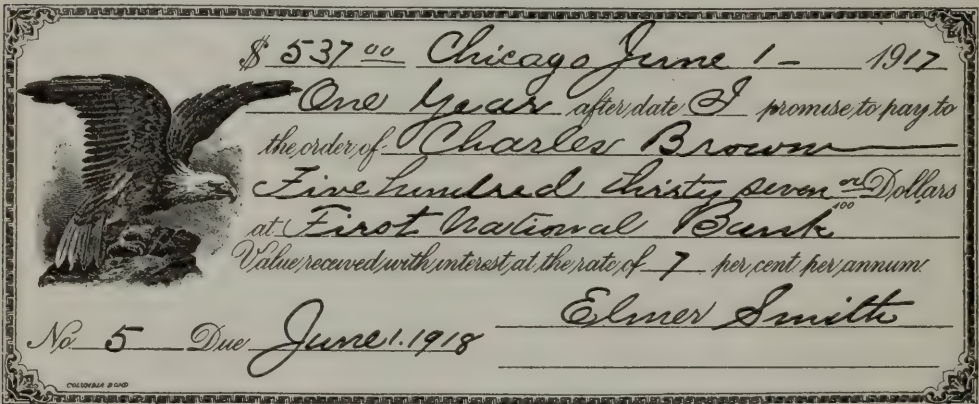 $ 537 00 Chicago June 1 - 1917
One Year after date I promise to pay to
the order of Charles Brown
Five hundred thirty seven no/100 Dollars
at First National Bank
Value received with interest at the rate of 7 per cent per annum.
Elmer Smith
No 5 Due June 1. 1918
COLUMBIA BOND